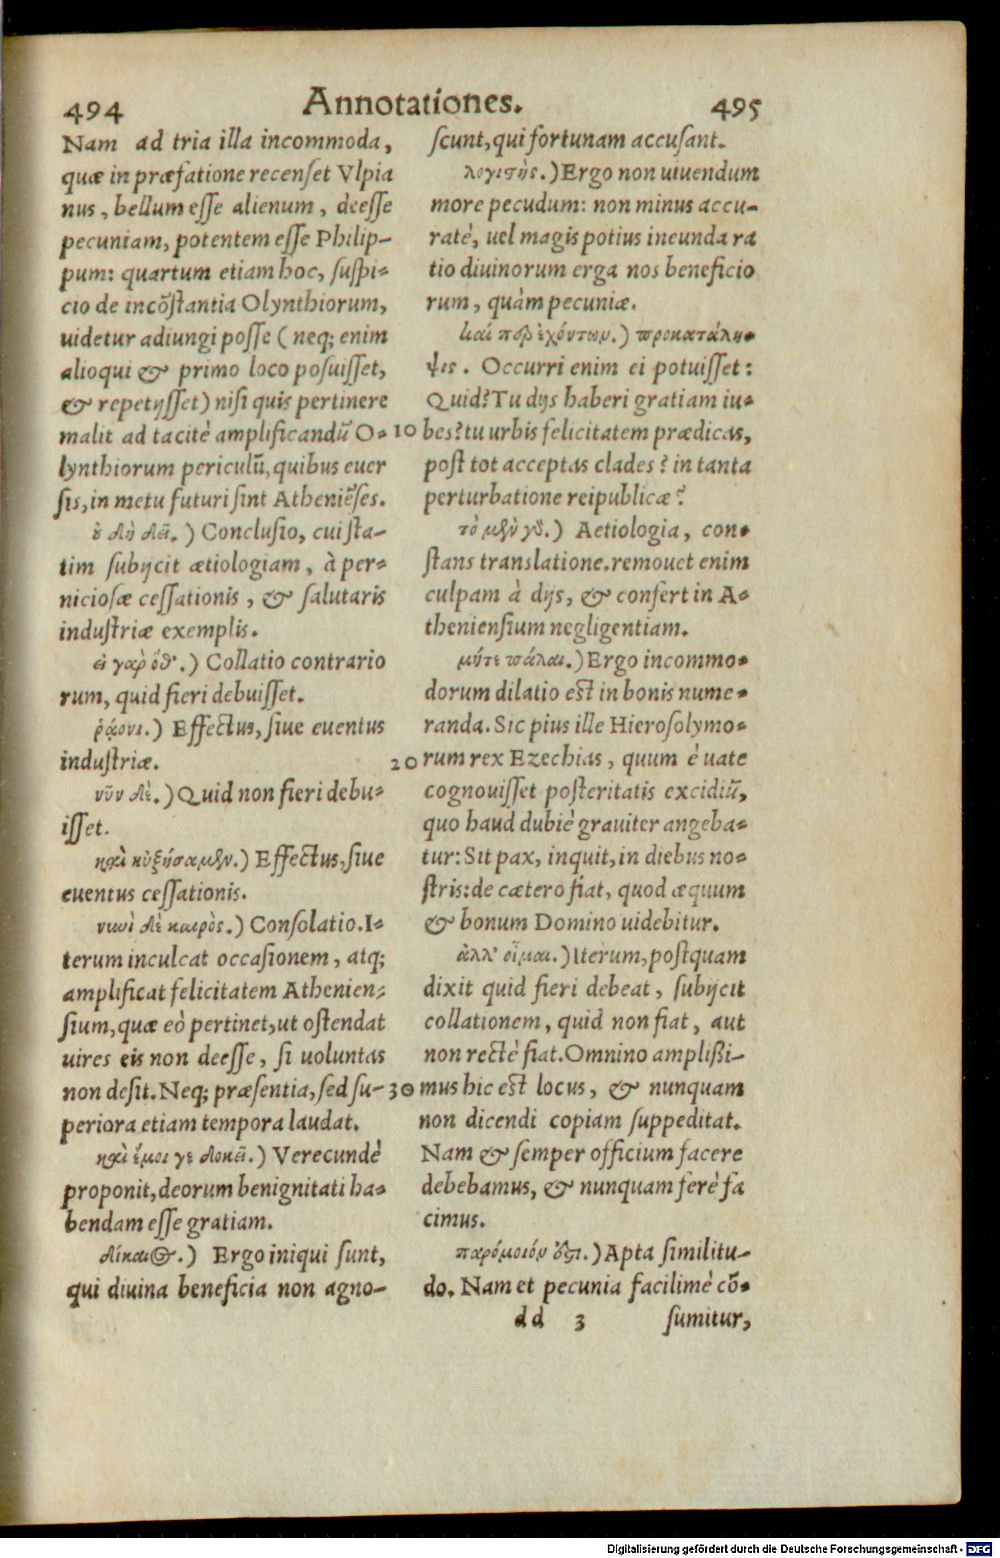 494 Annotationes. 495
Nam ad tria illa incommoda,
quæ in præfatione recenset Vlpia
nus, bellum esse alienum, deesse
pecuniam, potentem esse Philip-
pum: quartum etiam hoc, suspi-
cio de incõstantia Olynthiorum,
uidetur adiungi posse (neq; enim
alioqui & primo loco posuisset,
& repetijsset) nisi quis pertinere
malit ad tacitè amplificandũ O-
lynthiorum periculũ, quibus euer
sis, in metu futuri sint Atheniẽses.
ὁ δὴ δεῖ.) Conclusio, cui sta-
tim subijcit ætiologiam, à per-
niciosæ cessationis, & salutaris
industriæ exemplis.
εἰ γαρ ὅθ'.) Collatio contrario
rum, quid fieri debuisset.
ῥᾴονι.) Effectus, siue euentus
industriæ.
νῦν δὲ.) Quid non fieri debu-
isset.
καὶ ηὐξήσαμεν.) Effectus, siue
euentus cessationis.
νυνὶ δὲ καιρὸς.) Consolatio. I-
terum inculcat occasionem, atq;
amplificat felicitatem Athenien-
sium, quæ eò pertinet, ut ostendat
uires eis non deesse, si uoluntas
non desit. Neq; præsentia, sed su-
periora etiam tempora laudat.
καὶ ἔμοι γε δοκεῖ.) Verecundè
proponit, deorum benignitati ha-
bendam esse gratiam.
δίκαιος.) Ergo iniqui sunt,
qui diuina beneficia non agno-
scunt, qui fortunam accusant.
λογιστὴς.) Ergo non uiuendum
more pecudum: non minus accu-
ratè, uel magis potius ineunda ra
tio diuinorum erga nos beneficio
rum, quàm pecuniæ.
καί πολ ἐχόντων.) προκατάλη-
ψις. Occurri enim ei potuisset:
Quid? Tu dijs haberi gratiam iu-
10 bes? tu urbis felicitatem prædicas,
post tot acceptas clades? in tanta
perturbatione reipublicæ?
τὸ μὲν γδ.) Aetiologia, con-
stans translatione. remouet enim
culpam à dijs, & confert in A-
theniensium negligentiam.
μήτε πάλαι.) Ergo incommo-
dorum dilatio est in bonis nume-
randa. Sic pius ille Hierosolymo-
20 rum rex Ezechias, quum è uate
cognouisset posteritatis excidiũ,
quo haud dubiè grauiter angeba-
tur: Sit pax, inquit, in diebus no-
stris: de cætero fiat, quod æquum
& bonum Domino uidebitur.
ἀλλ' οἶμαι.) Iterum, postquam
dixit quid fieri debeat, subijcit
collationem, quid non fiat, aut
non rectè fiat. Omnino amplißi-
30 mus hic est locus, & nunquam
non dicendi copiam suppeditat.
Nam & semper officium facere
debebamus, & nunquam ferè fa
cimus.
παρόμοιόν ὅτι.) Apta similitu-
do. Nam et pecunia facilimè cõ-
dd 3 sumitur,
Digitalisierung gefördert durch die Deutsche Forschungsgemeinschaft - DFG